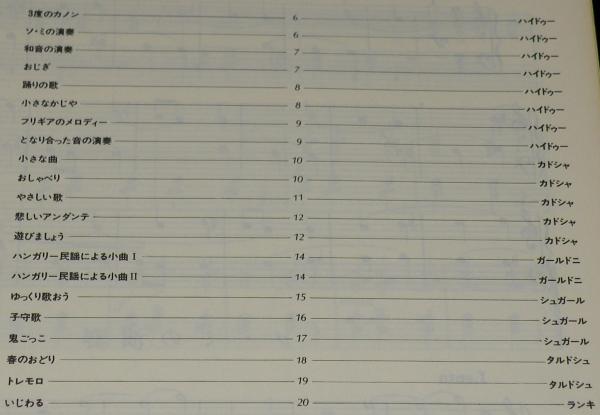 3度のカノン 6 ハイドゥー
ソ・ミの演奏 6 ハイドゥー
和音の演奏 7 ハイドゥー
おじぎ 7 ハイドゥー
踊りの歌 8 ハイドゥー
小さなかじや 8 ハイドゥー
フリギアのメロディー 9 ハイドゥー
となり合った音の演奏 9 ハイドゥー
小さな曲 10 カドシャ
おしゃべり 10 カドシャ
やさしい歌 11 カドシャ
悲しいアンダンテ 12 カドシャ
遊びましょう 12 カドシャ
ハンガリー民謡による小曲 I 14 ガールドニ
ハンガリー民謡による小曲 II 14 ガールドニ
ゆっくり歌おう 15 シュガール
子守歌 16 シュガール
鬼ごっこ 17 シュガール
春のおどり 18 タルドシュ
トレモロ 19 タルドシュ
いじわる 20 ランキ